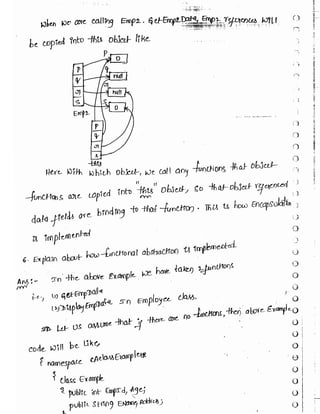 When we are calling Emp2. GetEmpData, Emp2 references will
be copied into this object like
P
P 0
q null
r null
s 0
Emp2
P
q
r
s
this
Here with which object, we call any functions that object
functions are copied into "this" object, so that object referenced
data fields are binding to that function. This is how Encapsulation
is implemented
6. Explain about how functional abstraction is implemented.
Ans:- In the above Example we have taken 2 functions
i.e., (1) GetEmpData
(2) DisplayEmpData in Employee class.
Let us assume that if there are no functions, then above Example
code will be like,
namespace cAclassExample
{
class Example
{ public int EmpId, Age;
public string EName, Address;